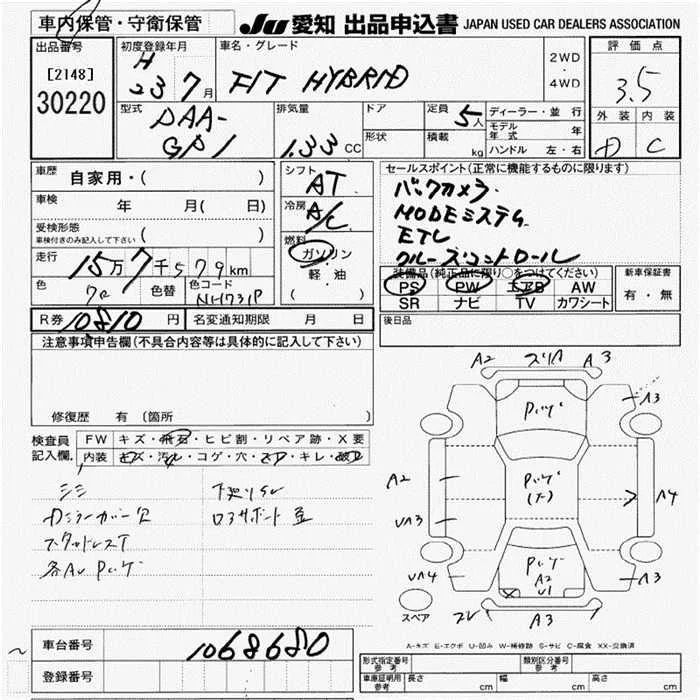 車内保管・守衛保管
JU 愛知 出品申込書 JAPAN USED CAR DEALERS ASSOCIATION
出品番号
[2148]
30220
初度登録年月
H
23 7月
車名・グレード
FIT HYBRID
2WD
・
4WD
評価点
3.5
外装 内装
D C
型式
DAA-
GP1
排気量
1.33 CC
ドア
形状
定員 5人
積載 kg
ディーラー・並行
モデル年式 年
ハンドル 左・右
車歴 自家用・( )
車検 年 月( 日)
受検形態
車検付きのみ記入して下さい ( )
走行 15万7千579km
色
色替
色コード
NH731P
シフト
AT
冷房
A/C
燃料
ガソリン
軽・油
( )
セールスポイント(正常に機能するものに限ります)
バックカメラ
MODEシステム
ETC
クルーズコントロール
装備品(純正品に限り○をつけてください)
PS PW エアB AW
SR ナビ TV カワシート
新車保証書
有・無
R券 10810円 名変通知期限 月 日
後日品
注意事項申告欄(不具合内容等は具体的に記入して下さい)
修復歴 有 (箇所
検査員
記入欄
FW キズ・飛石・ヒビ割・リペア跡・X要
内装 キズ・汚れ・コゲ・穴・スレ・キレ・破レ
シミ 下廻りサビ
Dミラーカバー欠
スタッドレスT
各AW
A2 A3
A3
A2
A4
A3
A4 A3
A2
U1
A3
スペア
A-キズ E-エクボ U-凹み W-補修跡 S-サビ C-腐食 XX-交換済
車台番号 1068680
登録番号
形式指定番号 参考
類別区分番号 参考
車庫証明用 参考
長さ cm 幅 cm 高さ cm